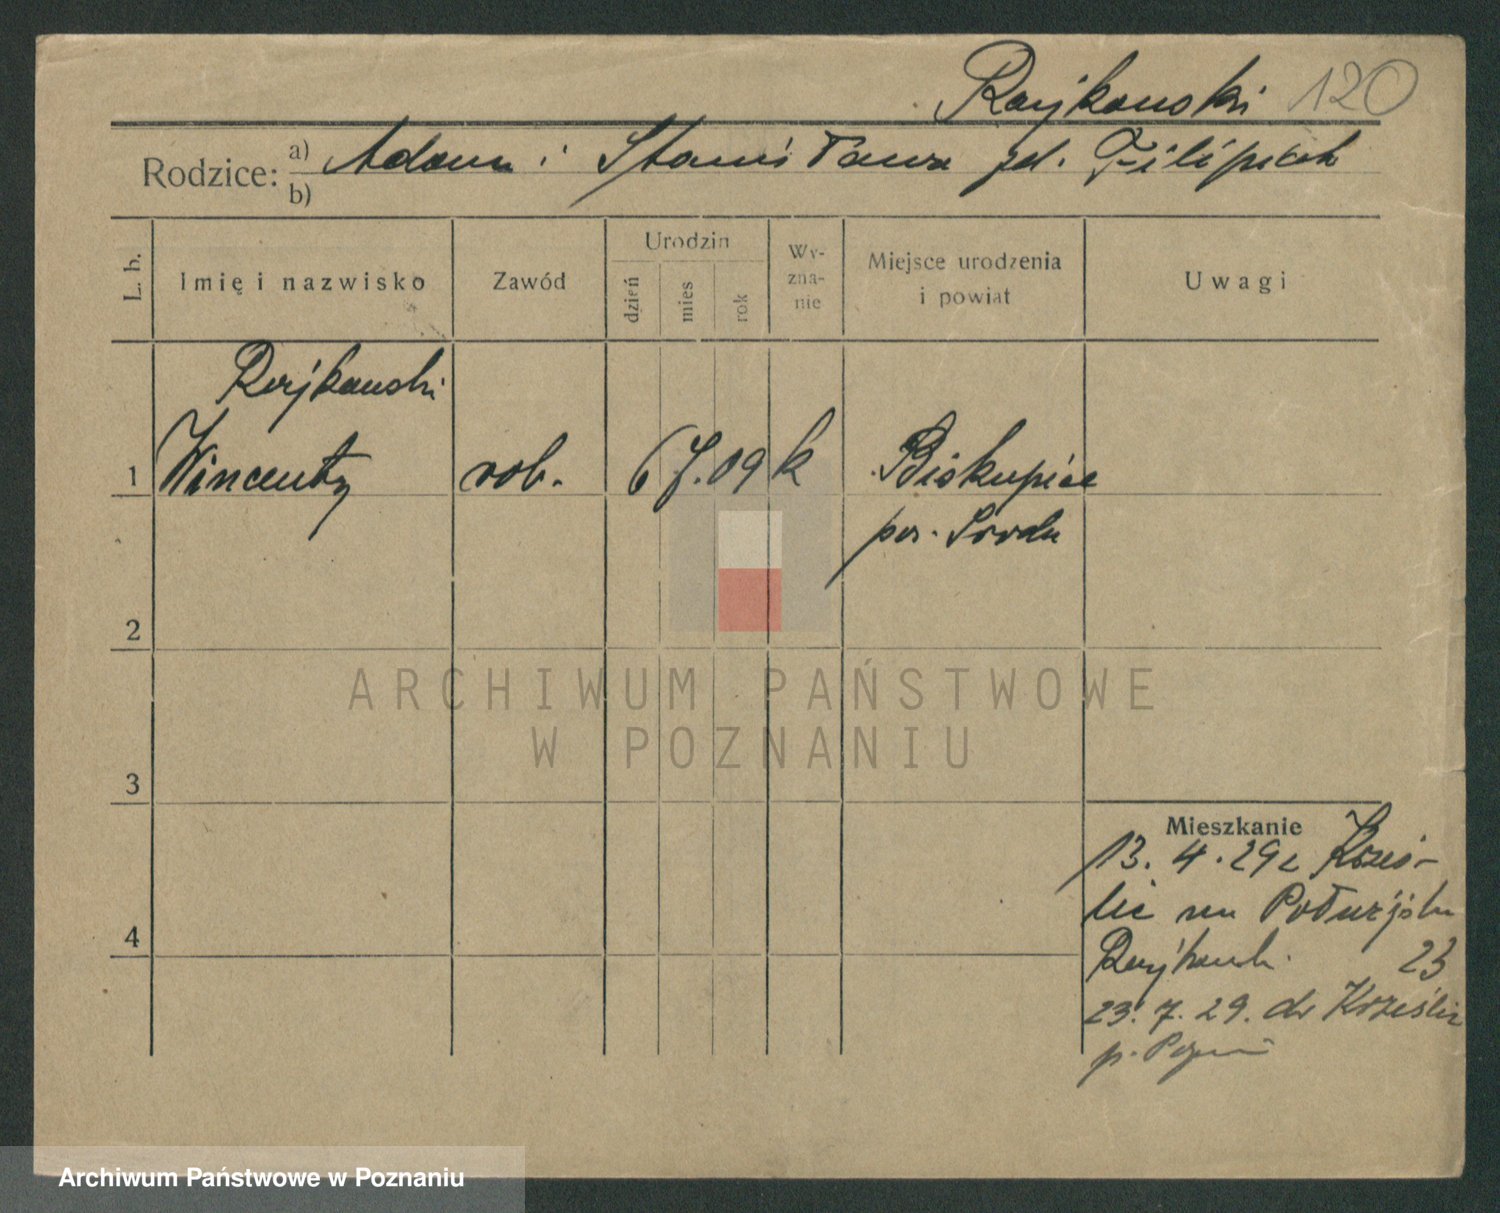 Rajkowski 120
Rodzice: a) Adam i Stanisława zd. Filipiak
b)
L. b. Imię i nazwisko Zawód Urodzin dzień mies rok Wy-zna-nie Miejsce urodzenia i powiat Uwagi
Rajkowski
1 Wincenty rob. 6 7. 09 k Biskupice
pow. Środa
2
ARCHIWUM PAŃSTWOWE
W POZNANIU
3
Mieszkanie
13. 4. 29 z Krześ-
lic na
4
Rajkowski 23
23. 7. 29. do Krześlic
p.
Archiwum Państwowe w Poznaniu